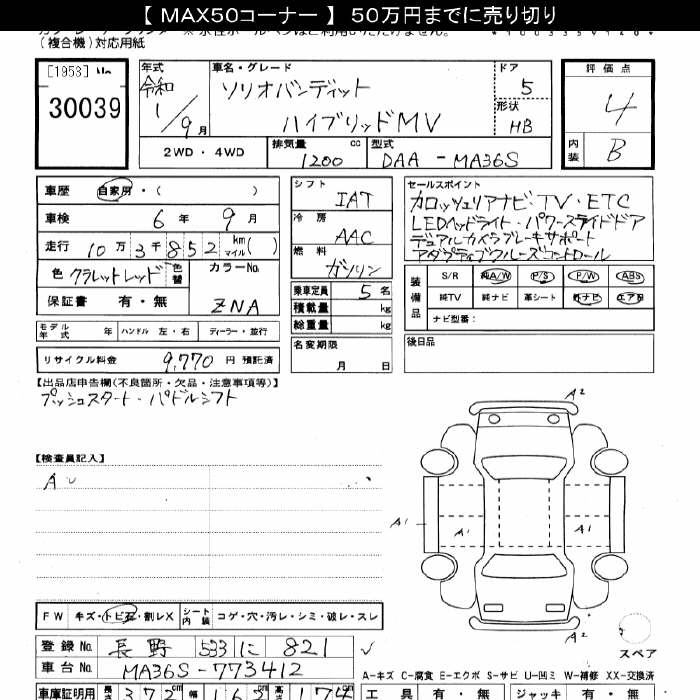 【 MAX50コーナー 】 50万円までに売り切り
(複合機)対応用紙
[1953]
30039
年式
令和
1/9月
車名・グレード
ソリオバンディット
ハイブリッドMV
ドア
5
形状
HB
評価点
4
内装
B
2WD ・ 4WD
排気量
1200 cc
型式
DAA - MA36S
車歴 自家用 ・ ( )
車検 6 年 9 月
走行 10 万 3 千 8 5 2 km マイル ( )
色 クラレットレッド 色替
カラーNo.
ZNA
保証書 有・無
シフト
IAT
冷房
AAC
燃料
ガソリン
乗車定員 5 名
積載量 kg
総重量 kg
セールスポイント
カロッツェリアナビ・TV・ETC
LEDヘッドライト・パワースライドドア
デュアルカメラブレーキサポート
アダプティブクルーズコントロール
装備品
S/R 純A/W P/S P/W ABS
純TV 純ナビ 革シート 外ナビ エアB
ナビ型番:
モデル年式 年 ハンドル 左・右 ディーラー・並行
リサイクル料金 9,770 円 預託済
名変期限
月 日
後日品
【出品店申告欄(不良箇所・欠品・注意事項等)】
プッシュスタート・パドルシフト
【検査員記入】
A2
A1
A1
A1
A2
スペア
FW キズ・トビ石・割レX
シート内装 コゲ・穴・汚レ・シミ・破レ・スレ
登録No. 長野 533 に 821
車台No. MA36S-773412
A-キズ C-腐食 E-エクボ S-サビ U-凹ミ W-補修 XX-交換済
車庫証明用 長さ 372 cm 幅 162 cm 高さ 174
工具 有・無 ジャッキ 有・無